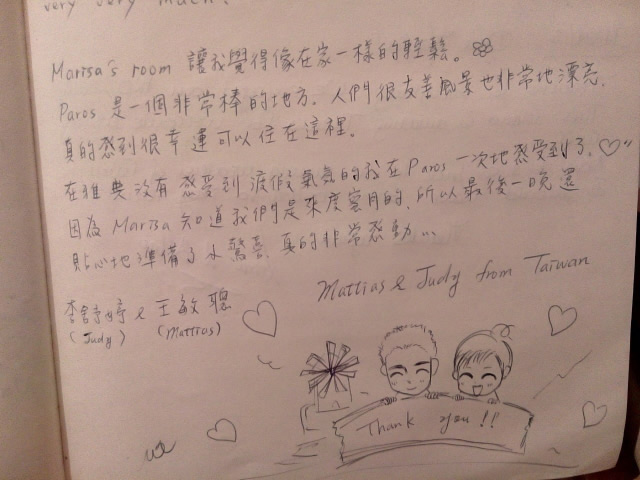 very very much!
Marisa's room 讓我覺得像在家一樣的輕鬆。
Paros 是一個非常棒的地方. 人們很友善風景也非常地漂亮.
真的感到很幸運可以住在這裡。
在雅典沒有感受到渡假氣氛的我在 Paros 一次地感受到了.
因為 Marisa 知道我們是來度蜜月的, 所以最後一晚還
貼心地準備了小驚喜. 真的非常感動...
Mattias & Judy from Taiwan
李 & 王敏聰
(Judy) (Mattias)
Thank you!!